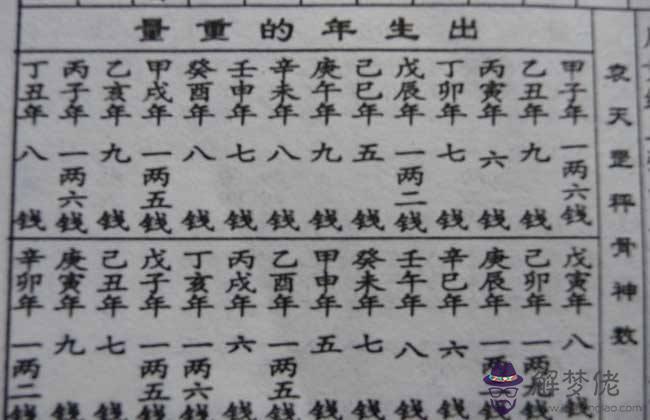 袁天罡秤骨神数
出生年的重量
甲子年 一两六钱
乙丑年 九钱
丙寅年 六钱
丁卯年 七钱
戊辰年 一两二钱
己巳年 五钱
庚午年 九钱
辛未年 八钱
壬申年 七钱
癸酉年 八钱
甲戌年 一两五钱
乙亥年 九钱
丙子年 一两六钱
丁丑年 八钱
戊寅年 八钱
己卯年 一两
庚辰年 一两
辛巳年 六钱
壬午年 八钱
癸未年 七钱
甲申年 五钱
乙酉年 一两五钱
丙戌年 六钱
丁亥年 一两六钱
戊子年 一两五钱
己丑年 七钱
庚寅年 九钱
辛卯年 一两二钱
解梦佬